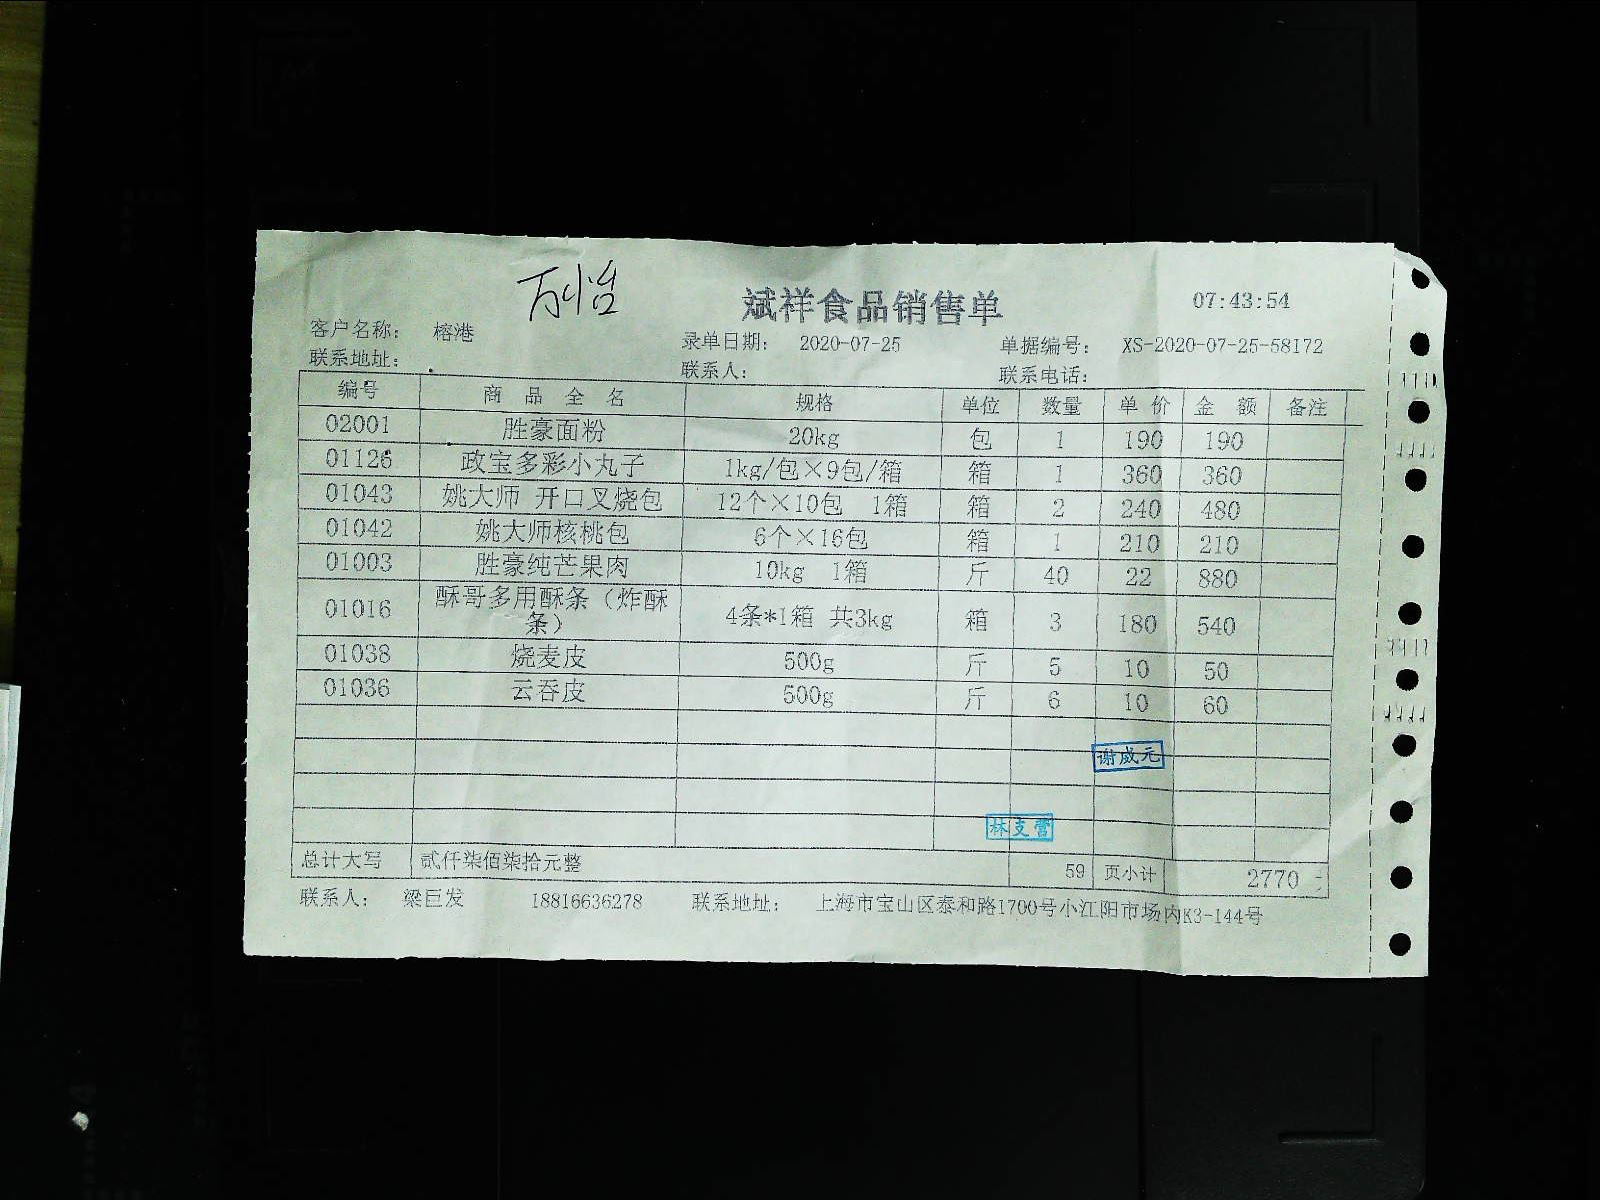 万怡
斌祥食品销售单 07:43:54
客户名称: 榕港 录单日期: 2020-07-25 单据编号: XS-2020-07-25-58172
联系地址: 联系人: 联系电话:
编号 商品全名 规格 单位 数量 单价 金额 备注
02001 胜豪面粉 20kg 包 1 190 190
01126 政宝多彩小丸子 1kg/包×9包/箱 箱 1 360 360
01043 姚大师 开口叉烧包 12个×10包 1箱 箱 2 240 480
01042 姚大师核桃包 6个×16包 箱 1 210 210
01003 胜豪纯芒果肉 10kg 1箱 斤 40 22 880
01016 酥哥多用酥条（炸酥条） 4条*1箱 共3kg 箱 3 180 540
01038 烧麦皮 500g 斤 5 10 50
01036 云吞皮 500g 斤 6 10 60
谢威元
林支营
总计大写 贰仟柒佰柒拾元整 59 页小计 2770
联系人: 梁巨发 18816636278 联系地址: 上海市宝山区泰和路1700号小江阳市场内K3-144号